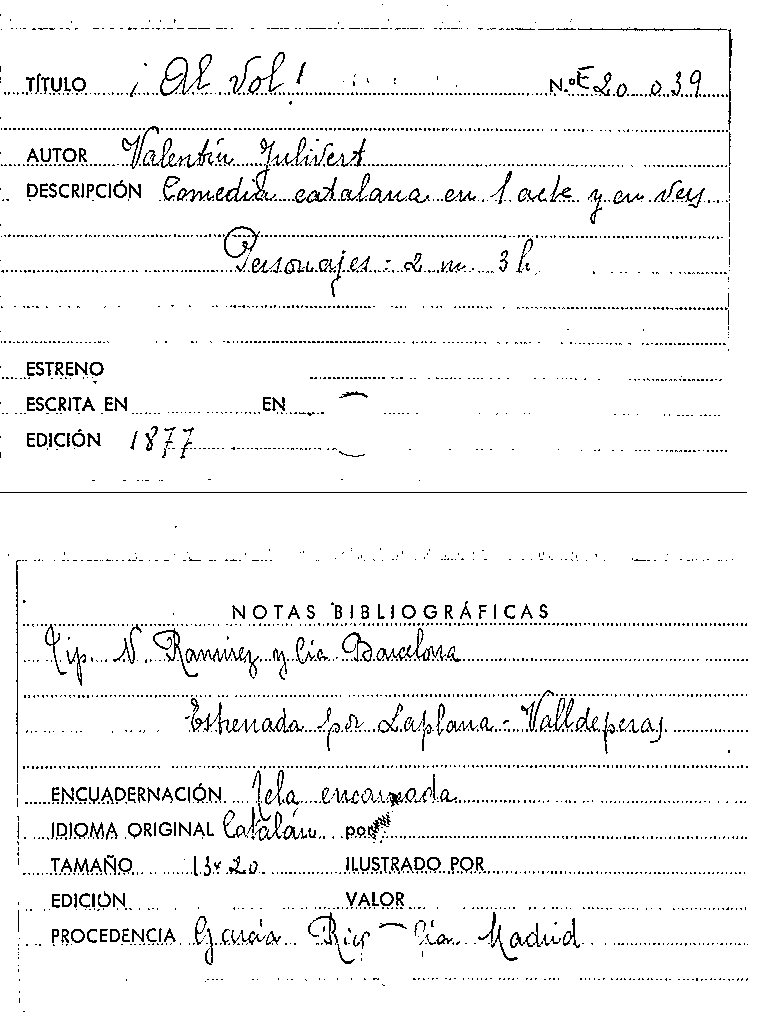 TÍTULO ¡Al vol! N.º E20 039
AUTOR Valentín Julivert
DESCRIPCIÓN Comedia catalana en 1 acte y en vers
Personajes - 2 m. 3 h.
ESTRENO
ESCRITA EN EN
EDICIÓN 1877
NOTAS BIBLIOGRÁFICAS
Tip. N. Ramirez y Cía Barcelona
Estrenada por Laplana - Valldeperas
ENCUADERNACIÓN Tela encarnada
IDIOMA ORIGINAL Catalán por
TAMAÑO 13x20 ILUSTRADO POR
EDICIÓN VALOR
PROCEDENCIA García Rico - Cía. Madrid